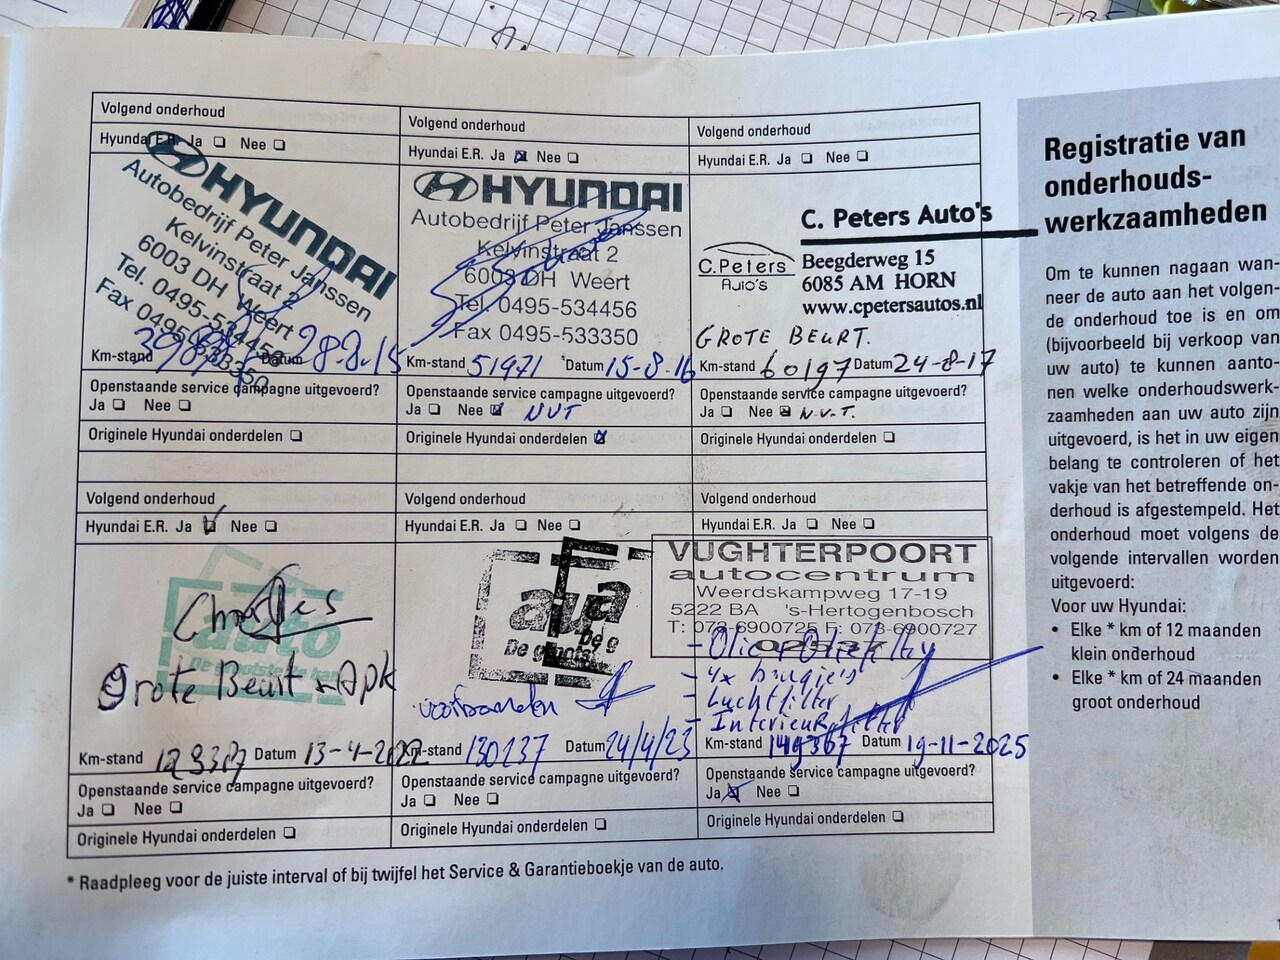 Volgend onderhoud
Hyundai E.R. Ja Nee
HYUNDAI
Autobedrijf Peter Janssen
Kelvinstraat 2
6003 DH Weert
Tel. 0495-534456
Fax 0495-533350
Km-stand Datum 28-8-15
Openstaande service campagne uitgevoerd?
Ja Nee
Originele Hyundai onderdelen
Volgend onderhoud
Hyundai E.R. Ja Nee
HYUNDAI
Autobedrijf Peter Janssen
Kelvinstraat 2
6003 DH Weert
Tel. 0495-534456
Fax 0495-533350
Km-stand 51971 Datum 15-8-16
Openstaande service campagne uitgevoerd?
Ja Nee NVT
Originele Hyundai onderdelen
Volgend onderhoud
Hyundai E.R. Ja Nee
C. Peters Auto's
C.Peters
Auto's
Beegderweg 15
6085 AM HORN
www.cpetersautos.nl
GROTE BEURT.
Km-stand 60197 Datum 24-8-17
Openstaande service campagne uitgevoerd?
Ja Nee N.V.T.
Originele Hyundai onderdelen
Volgend onderhoud
Hyundai E.R. Ja Nee
auto
De grootste
Grote Beurt + Apk
Km-stand Datum 13-4-2022
Openstaande service campagne uitgevoerd?
Ja Nee
Originele Hyundai onderdelen
Volgend onderhoud
Hyundai E.R. Ja Nee
De
Km-stand 130237 Datum 24/4/23
Openstaande service campagne uitgevoerd?
Ja Nee
Originele Hyundai onderdelen
Volgend onderhoud
Hyundai E.R. Ja Nee
VUGHTERPOORT
autocentrum
Weerdskampweg 17-19
5222 BA 's-Hertogenbosch
T: 073-6900725 F: 073-6900727
- Olie + Oliefilter
- 4x bougie's
- Luchtfilter
- Interieurfilter
Km-stand 149367 Datum 19-11-2025
Openstaande service campagne uitgevoerd?
Ja Nee
Originele Hyundai onderdelen
* Raadpleeg voor de juiste interval of bij twijfel het Service & Garantieboekje van de auto.
Registratie van
onderhouds-
werkzaamheden
Om te kunnen nagaan wan-
neer de auto aan het volgen-
de onderhoud toe is en om
(bijvoorbeeld bij verkoop van
uw auto) te kunnen aanto-
nen welke onderhoudswerk-
zaamheden aan uw auto zijn
uitgevoerd, is het in uw eigen
belang te controleren of het
vakje van het betreffende on-
derhoud is afgestempeld. Het
onderhoud moet volgens de
volgende intervallen worden
uitgevoerd:
Voor uw Hyundai:
• Elke * km of 12 maanden
klein onderhoud
• Elke * km of 24 maanden
groot onderhoud